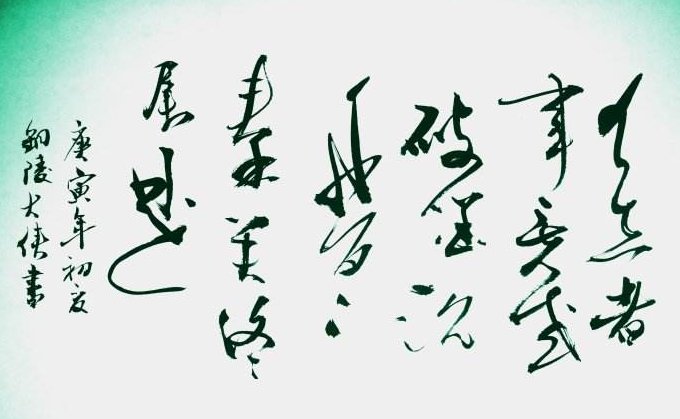 有志者
事竟成
破釜沉
舟百二
秦关终
属楚
庚寅年初夏
铜陵大侠书